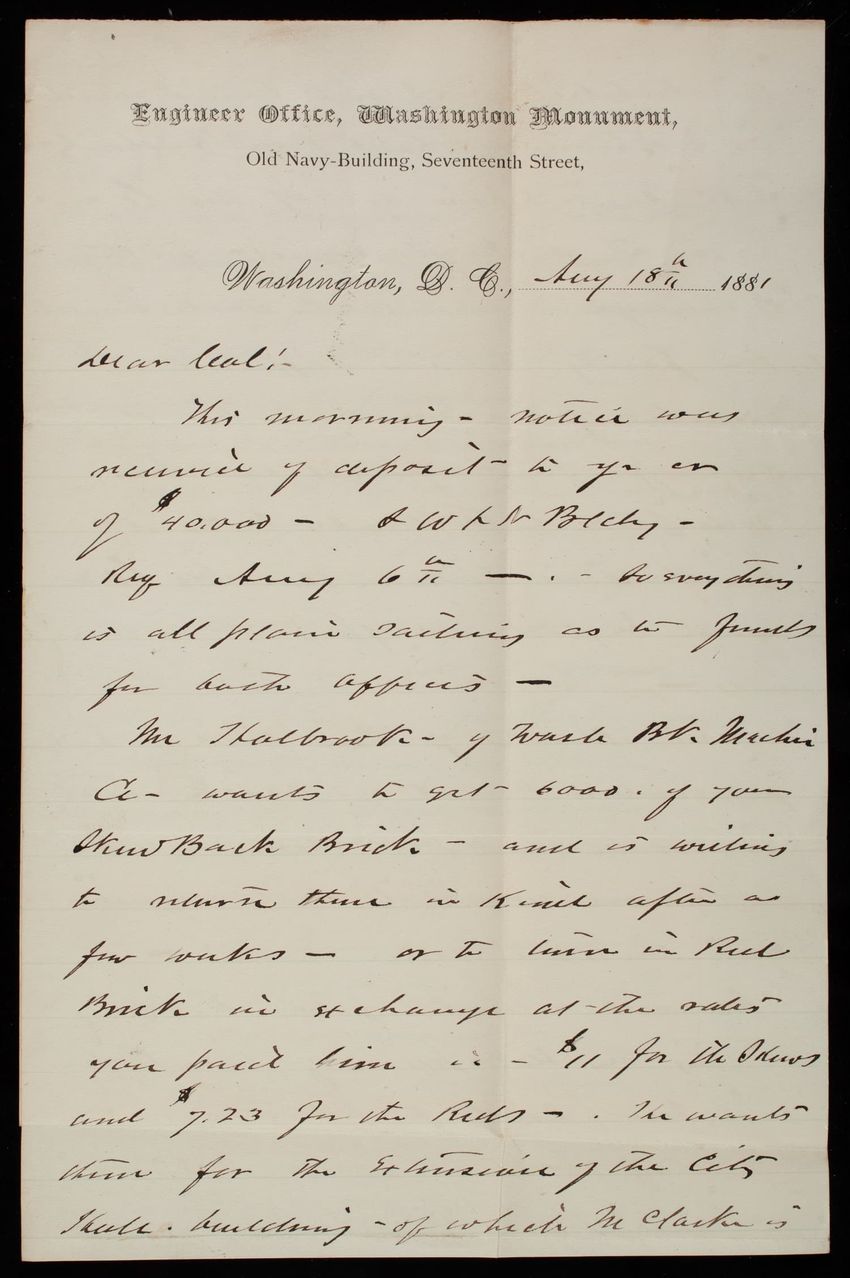 Engineer Office, Washington Monument,
Old Navy-Building, Seventeenth Street,
Washington, D. C., Aug 18th 1881
Dear Col:-
This morning - notice was
received of deposit to yr cr
of $40.000 - S W & N Bldg -
Req Aug 6th — . - So everything
is all plain sailing as to funds
for both offices —
Mr Holbrook - of Wash Bk. Machine
Co - wants to get 6000. of your
Skew Back Brick - and is willing
to return them in Kind after a
few weeks — or to turn in Red
Brick in exchange at the rates
you paid him ie - $11 for the Skews
and $7.23 for the Reds - . He wants
them for the Extension of the City
Hall. building - of which Mr Clark is